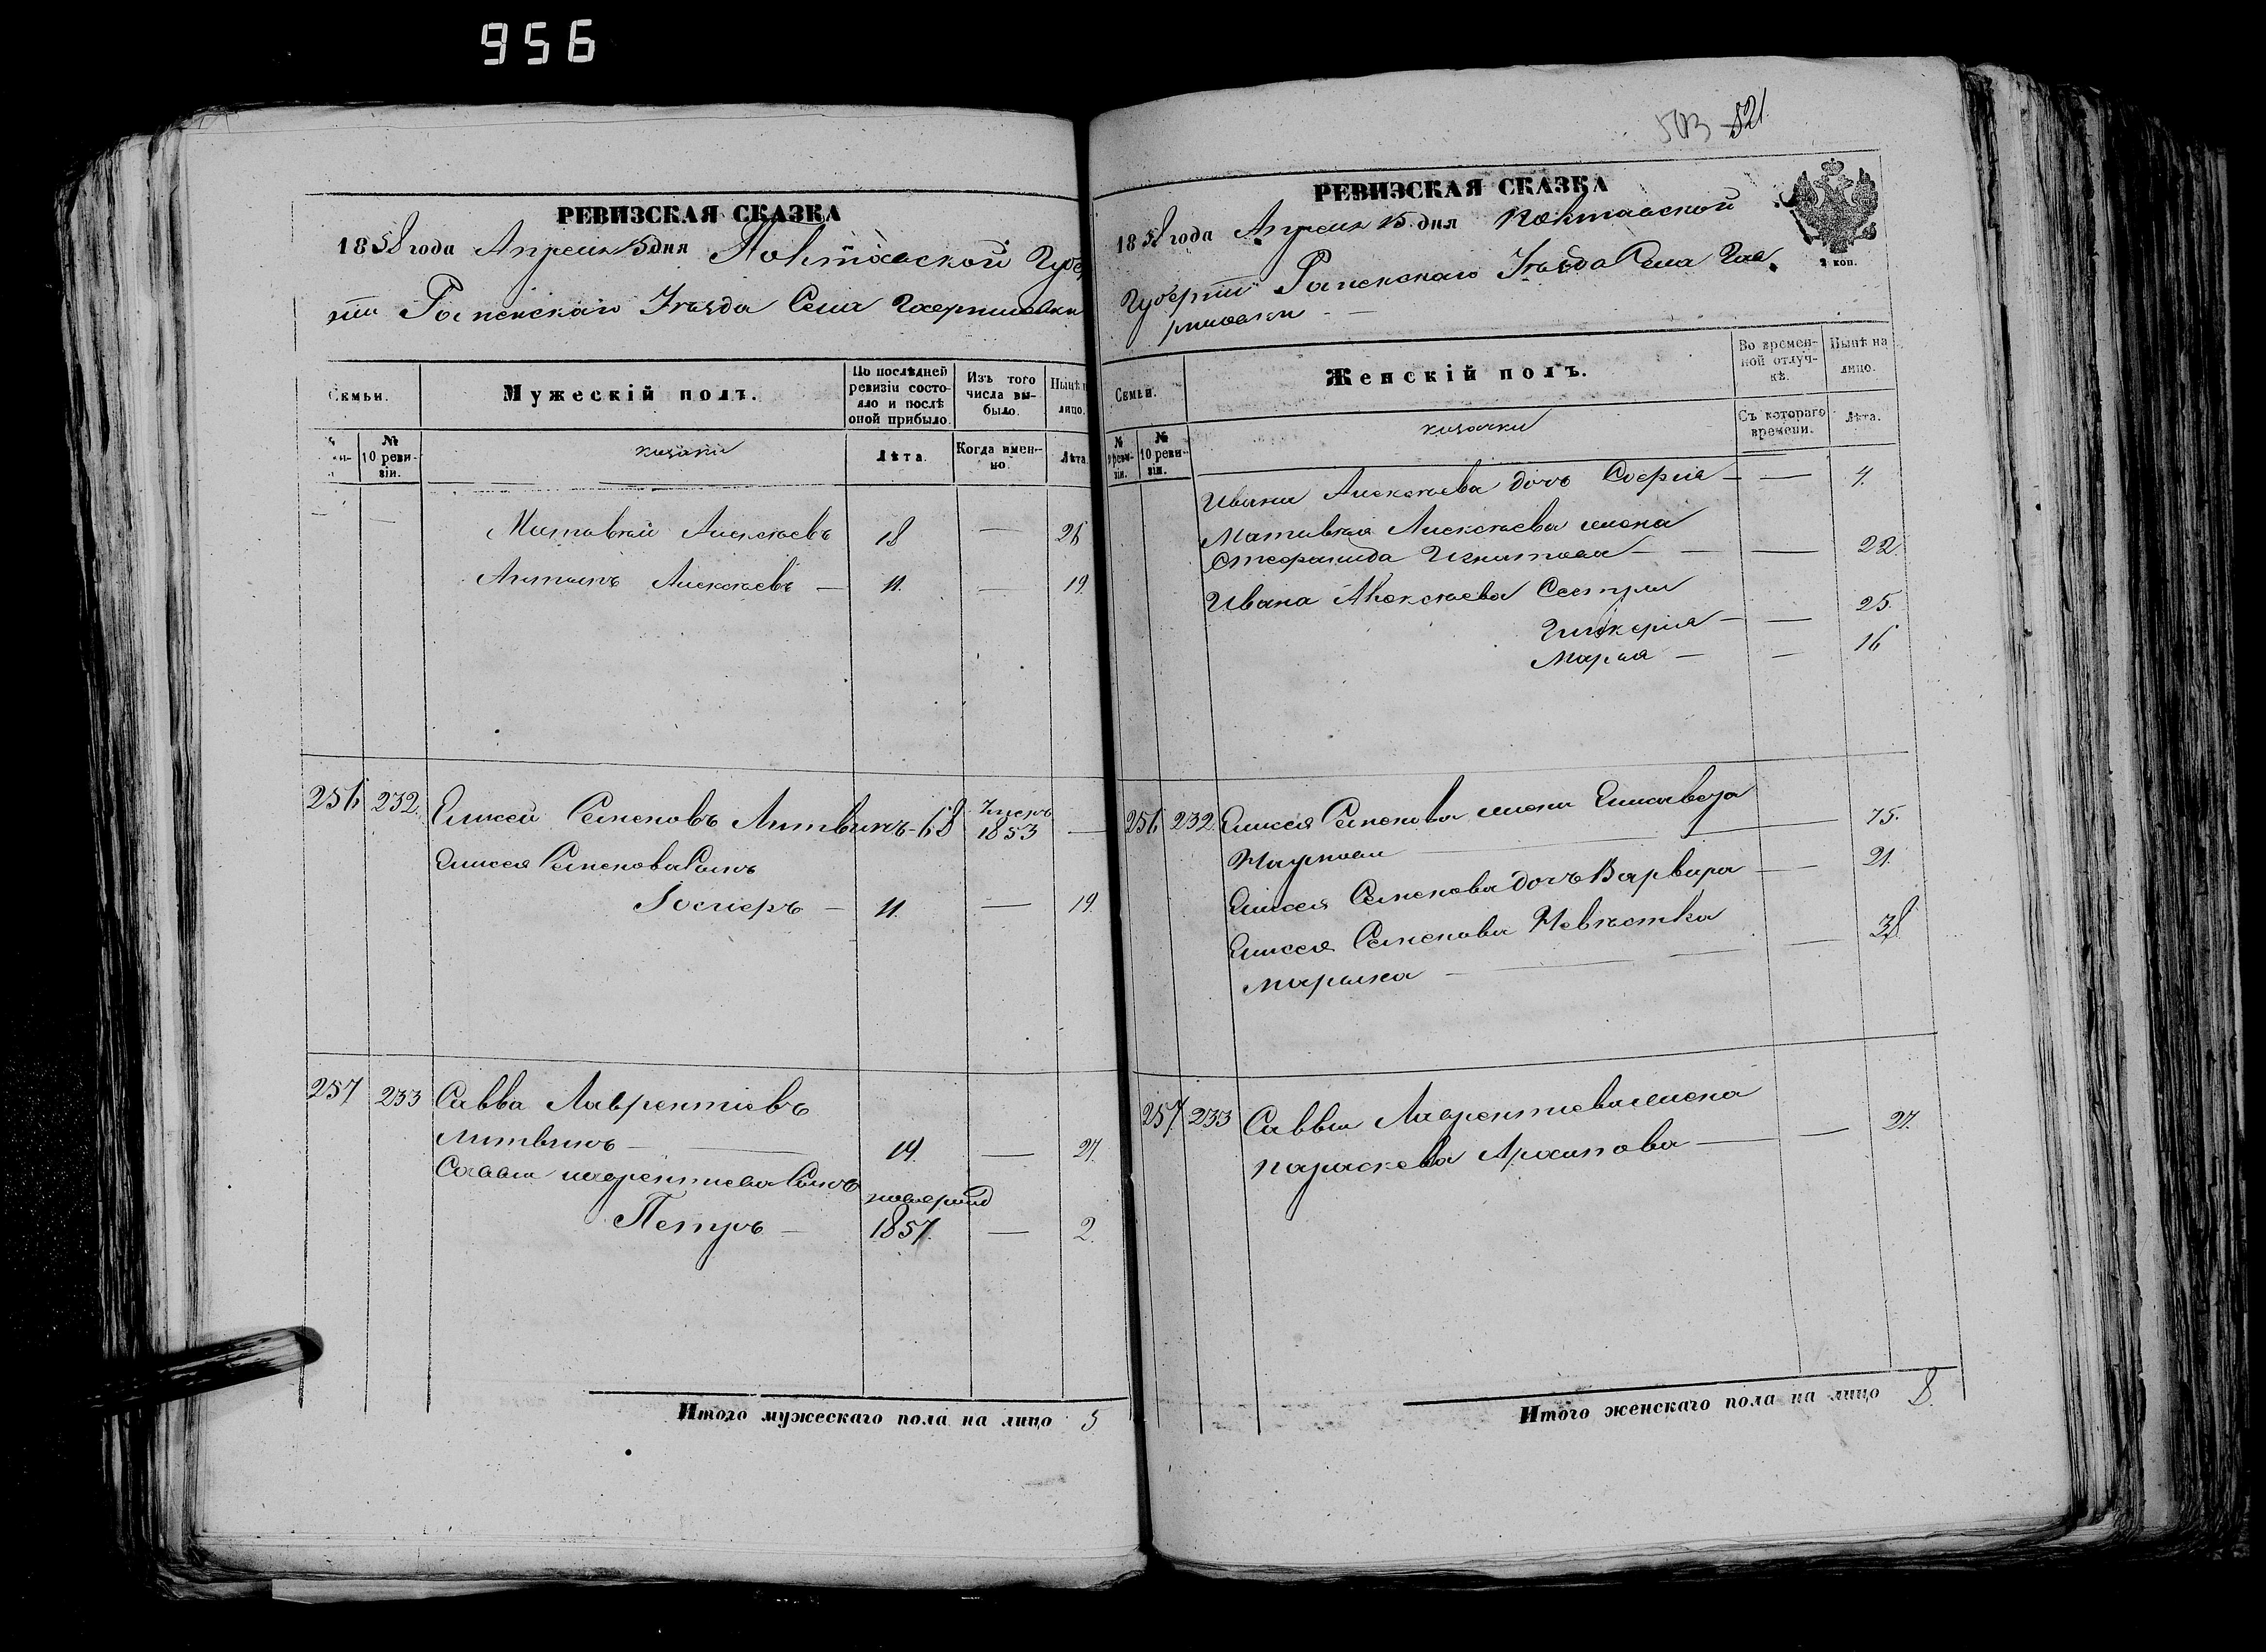 956
РЕВИЗСКАЯ СКАЗКА
1858 года Апреля 15 дня Полтавской Губер
нии Роменскаго Уезда Села Гавришовки
Семьи.
Мужескій полъ.
По послѣдней ревизіи состояло и послѣ оной прибыло.
Изъ того числа выбыло.
Нынѣ
лицо.
№ 10 ревизіи.
козаки
Лѣта.
Когда именно.
Лѣта.
Матвѣй Алексѣевъ 18 — 26
Антонъ Алексѣевъ — 11. — 19.
256 232. Елисей Семеновъ Литвинъ - 68 1853 —
Елисея Семенова Сынъ
— 11. — 19.
257 233 Савва Лаврентіевъ
Литвинъ — 19. — 27.
Саввы Лаврентіева Сынъ
Петръ — 1857. — 2.
Итого мужескаго пола на лицо 5
503 521.
РЕВИЗСКАЯ СКАЗКА
1858 года Апреля 15 дня Полтавской
Губерніи Роменскаго Уезда Села Гав
ришовки
2 коп.
Семьи.
Женскій полъ.
Во временной отлучкѣ.
Нынѣ на лицо.
№ 9 ревизіи.
№ 10 ревизіи.
козачки
Съ котораго времени.
Лѣта.
Ивана Алексѣева дочь Софія — — 4.
Матвѣя Алексѣева жена
Стефанида Игнатова — — 22.
Ивана Алексѣева Сестры
Гликерія — — 25.
Марія — — 16
256 232 Елисея Семенова жена Елисавета
Наумова — 75.
Елисея Семенова дочь Варвара — 21.
Елисея Семенова Невѣстка
— — 38
257. 233 Саввы Лаврентіева жена
параскева Архипова — — 27.
Итого женскаго пола на лицо 8.